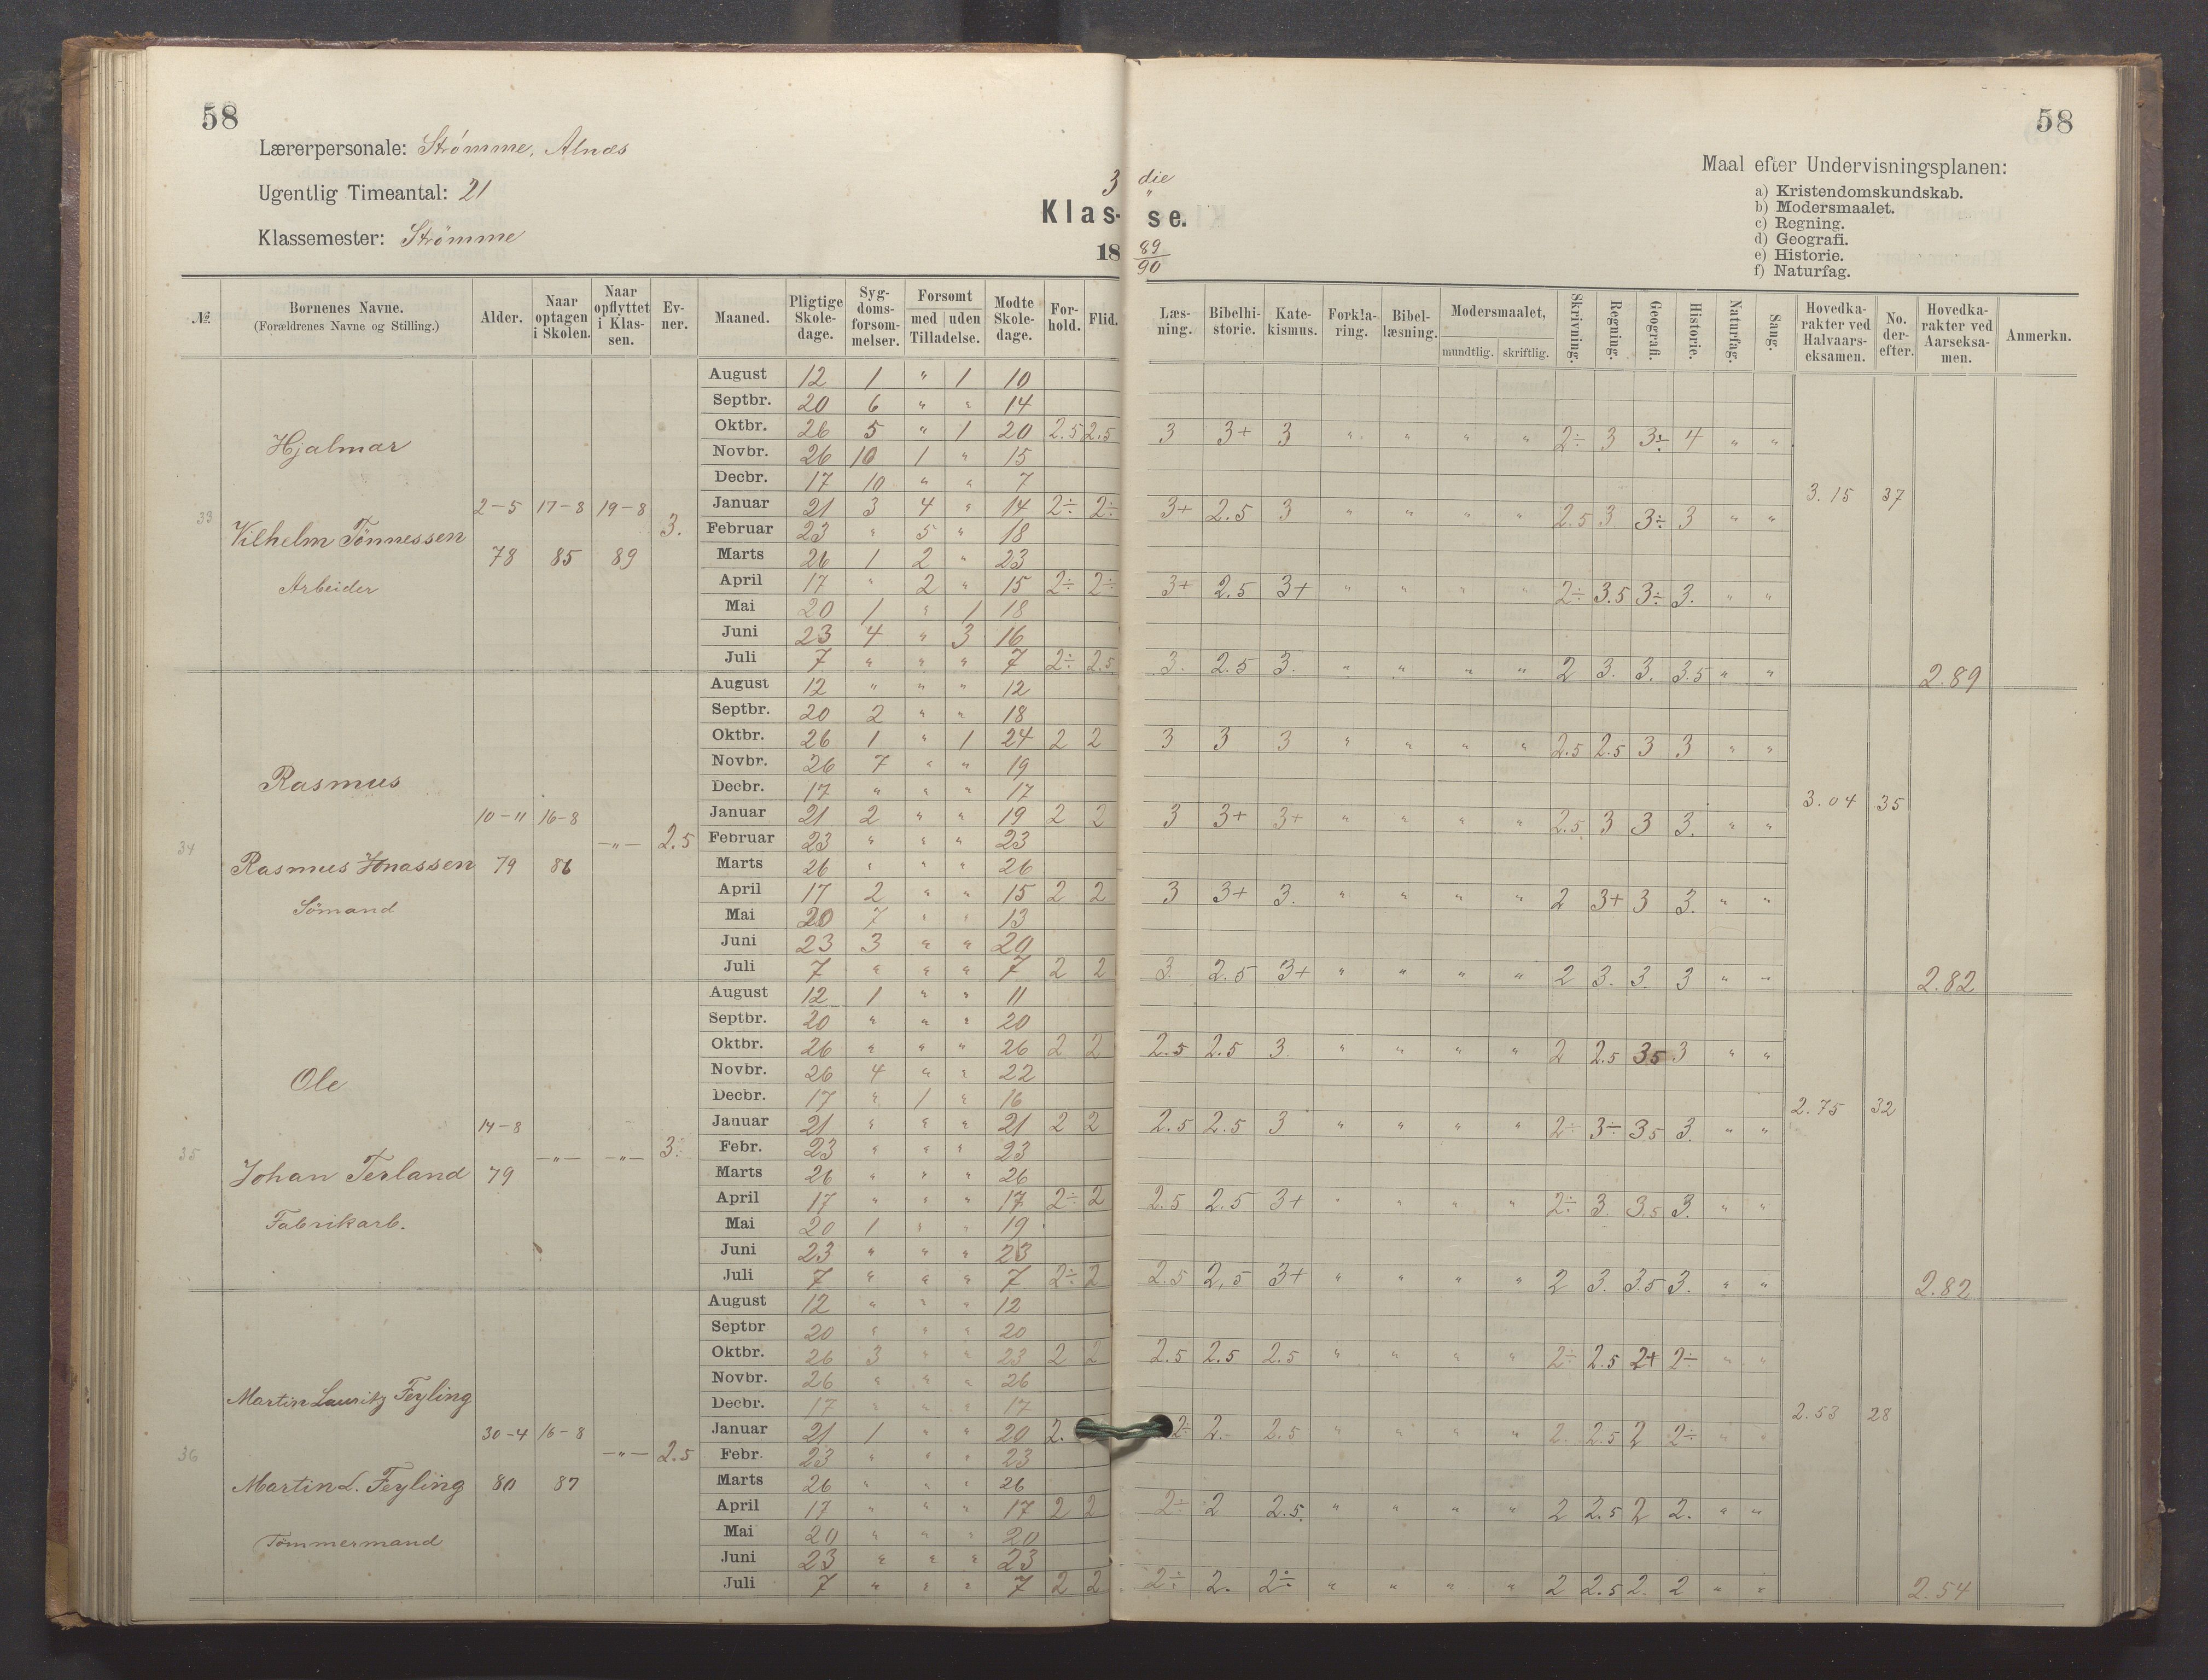 58
Lærerpersonale: Strømme, Alnæs
Ugentlig Timeantal: 21
Klassemester: Strømme
3 die
Klas- se.
18 89/90
58
Maal efter Undervisningsplanen:
a) Kristendomskundskab.
b) Modersmaalet.
c) Regning.
d) Geografi.
e) Historie.
f) Naturfag.
№ Bornenes Navne. (Forældrenes Navne og Stilling.) Alder. Naar optagen i Skolen. Naar opflyttet i Klassen. Evner. Maaned. Pligtige Skoledage. Sygdomsforsommelser. Forsomt med uden Tilladelse. Modte Skoledage. Forhold. Flid. Læsning. Bibelhistorie. Katekismus. Forklaring. Bibellæsning. Modersmaalet, mundtlig. skriftlig. Skrivning. Regning. Geografi. Historie. Naturfag. Sang. Hovedkarakter ved Halvaarseksamen. No. derefter. Hovedkarakter ved Aarseksamen. Anmerkn.
33 Hjalmar
Vilhelm Tönnessen
Arbeider
2-5 78 17-8 85 19-8 89 3.
August 12 1 " 1 10
Septbr. 20 6 " " 14
Oktbr. 26 5 " 1 20 2.5 2.5 3 3+ 3 " " " " 2÷ 3 3÷ 4 " "
Novbr. 26 10 1 " 15
Decbr. 17 10 " " 7
Januar 21 3 4 " 14 2÷ 2÷ 3+ 2.5 3 " " " " 2.5 3 3÷ 3 " " 3.15 37
Februar 23 " 5 " 18
Marts 26 1 2 " 23
April 17 " 2 " 15 2÷ 2÷ 3+ 2.5 3+ " " " " 2÷ 3.5 3÷ 3. " "
Mai 20 1 " 1 18
Juni 23 4 " 3 16
Juli 7 " " " 7 2÷ 2.5 3. 2.5 3. " " " " 2 3. 3. 3.5 " " 2.89
34 Rasmus
Rasmus Jonassen
Sömand
10-11 79 16-8 86 -"- 2.5
August 12 " " " 12
Septbr. 20 2 " " 18
Oktbr. 26 1 " 1 24 2 2 3 3 3 " " " " 2.5 2.5 3 3 " "
Novbr. 26 7 " " 19
Decbr. 17 " " " 17
Januar 21 2 " " 19 2 2 3 3+ 3+ " " " " 2.5 3 3 3. " " 3.04 35
Februar 23 " " " 23
Marts 26 " " " 26
April 17 2 " " 15 2 2 3 3+ 3. " " " " 2 3+ 3 3. " "
Mai 20 7 " " 13
Juni 23 3 " " 20
Juli 7 " " " 7 2 2 3 2.5 3+ " " " " 2 3. 3. 3 " " 2.82
35 Ole
Johan Terland
Fabrikarb.
14-8 79 -"- -"- 3÷
August 12 1 " " 11
Septbr. 20 " " " 20
Oktbr. 26 " " " 26 2 2 2.5 2.5 3. " " " " 2 2.5 3.5 3 " "
Novbr. 26 4 " " 22
Decbr. 17 " 1 " 16
Januar 21 " " " 21 2 2 2.5 2.5 3 " " " " 2÷ 3÷ 3.5 3. " " 2.75 32
Febr. 23 " " " 23
Marts 26 " " " 26
April 17 " " " 17 2÷ 2 2.5 2.5 3+ " " " " 2÷ 3. 3.5 3. " "
Mai 20 1 " " 19
Juni 23 " " " 23
Juli 7 " " " 7 2÷ 2 2.5 2,5 3+ " " " " 2 3. 3.5 3. " " 2.82
36 Martin Lauritz Feyling
Martin L. Feyling
Tömmermand
30-4 80 16-8 87 -"- 2.5
August 12 " " " 12
Septbr 20 " " " 20
Oktbr. 26 3 " " 23 2 2 2.5 2.5 2.5 " " " " 2÷ 2.5 2+ 2÷ " "
Novbr. 26 " " " 26
Decbr. 17 " " " 17
Januar 21 1 " " 20 2. 2÷ 2. 2.5 " " " " 2. 2.5 2 2÷ " " 2.53 28
Febr. 23 " " " 23
Marts 26 " " " 26
April 17 " " " 17 2 2 2÷ 2 2.5. " " " " 2 2.5 2 2. " "
Mai 20 " " " 20
Juni 23 " " " 23
Juli 7 " " " 7 2 2 2÷ 2. 2÷ " " " " 2 2.5 2. 2 " " 2.54